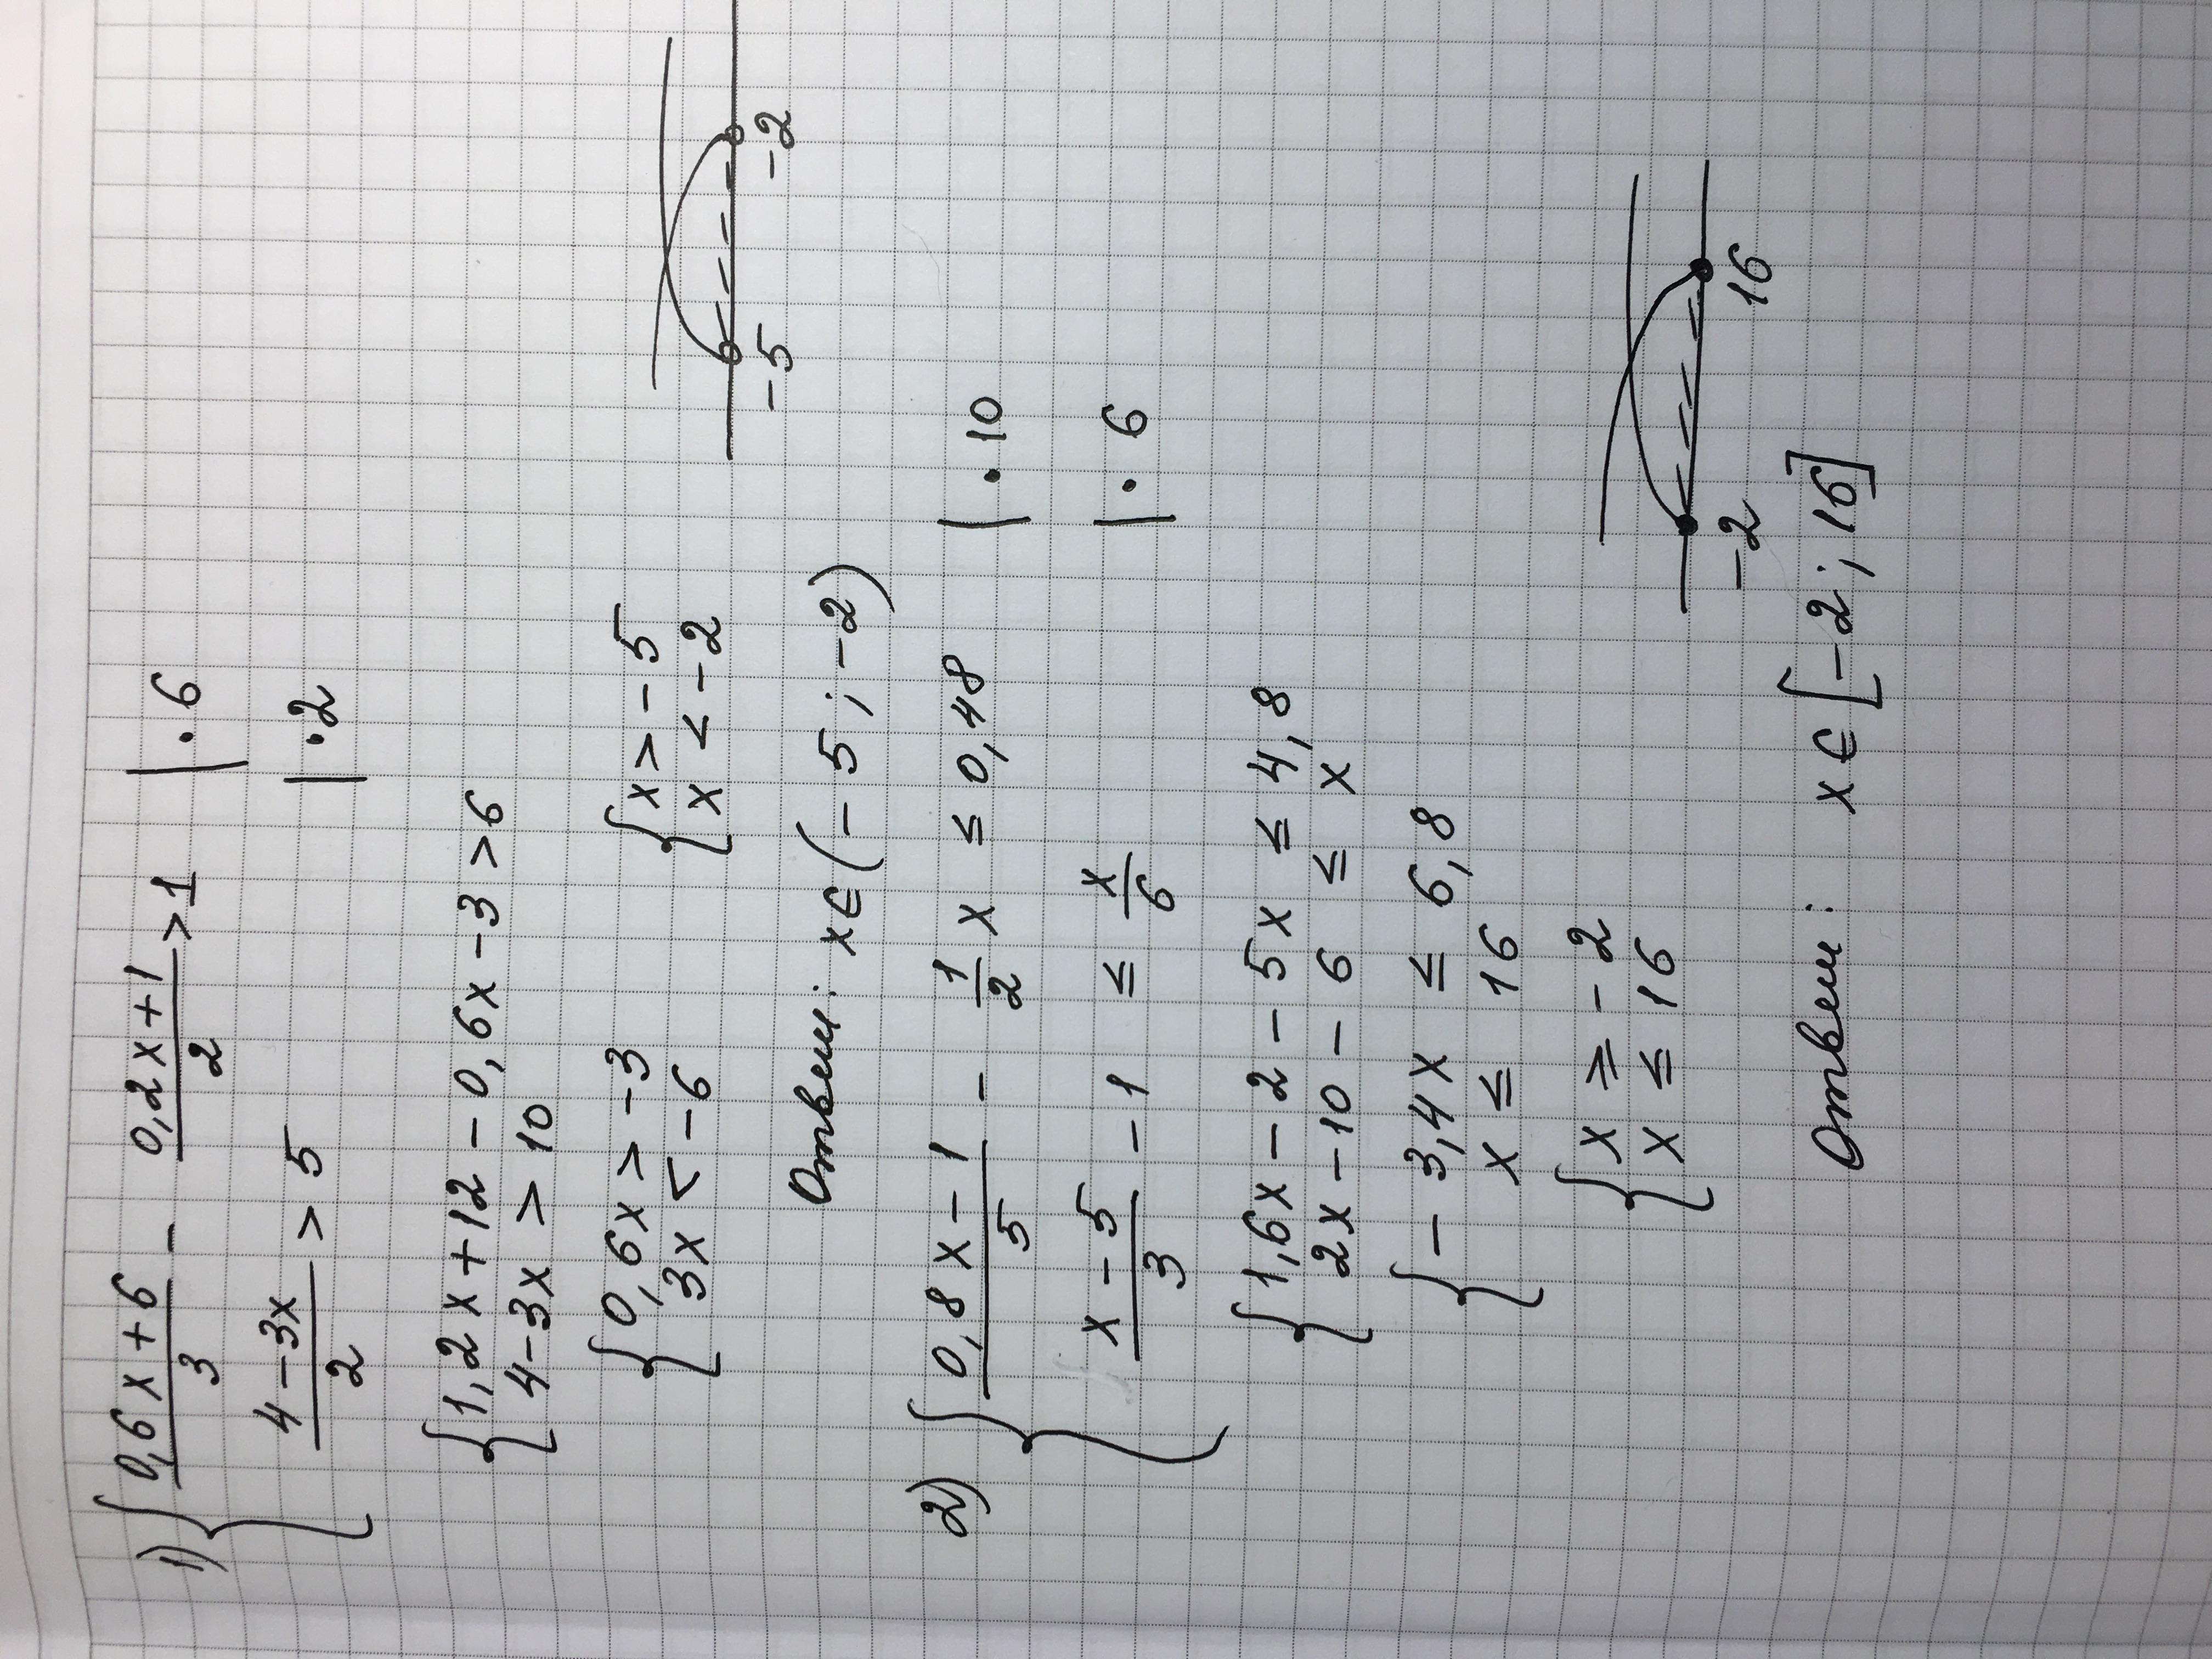 1) { (0,6x+6)/3 - (0,2x+1)/2 > 1 | · 6
(4-3x)/2 > 5 | · 2
{ 1,2x+12-0,6x-3>6
4-3x > 10
{ 0,6x > -3 { x > -5
3x < -6 x < -2
-5 -2
Ответ: x ∈ (-5; -2)
2) { (0,8x-1)/5 - 1/2 x ≤ 0,48 | · 10
(x-5)/3 - 1 ≤ x/6 | · 6
{ 1,6x - 2 - 5x ≤ 4,8
2x - 10 - 6 ≤ x
{ - 3,4x ≤ 6,8
x ≤ 16
{ x ≥ -2
x ≤ 16
-2 16
Ответ: x ∈ [-2; 16]